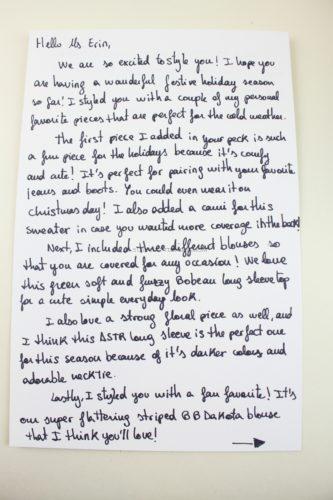 Hello Ms Erin,
We are so excited to style you! I hope you
are having a wonderful festive holiday season
so far! I styled you with a couple of my personal
favorite pieces that are perfect for the cold weather.
The first piece I added in your peck is such
a fun piece for the holidays because it's comfy
and cute! It's perfect for pairing with your favorite
jeans and boots. You could even wear it on
Christmas day! I also added a cami for this
sweater in case you wanted more coverage in the back!
Next, I included three different blouses so
that you are covered for any occasion! We love
this green soft and fuzzy Bobeau long sleeve top
for a cute simple everyday look.
I also love a strong floral piece as well, and
I think this ASTR long sleeve is the perfect one
for this season because of it's darker colors and
adorable necktie.
Lastly, I styled you with a fan favorite! It's
our super flattering striped BB Dakota blouse
that I think you'll love!